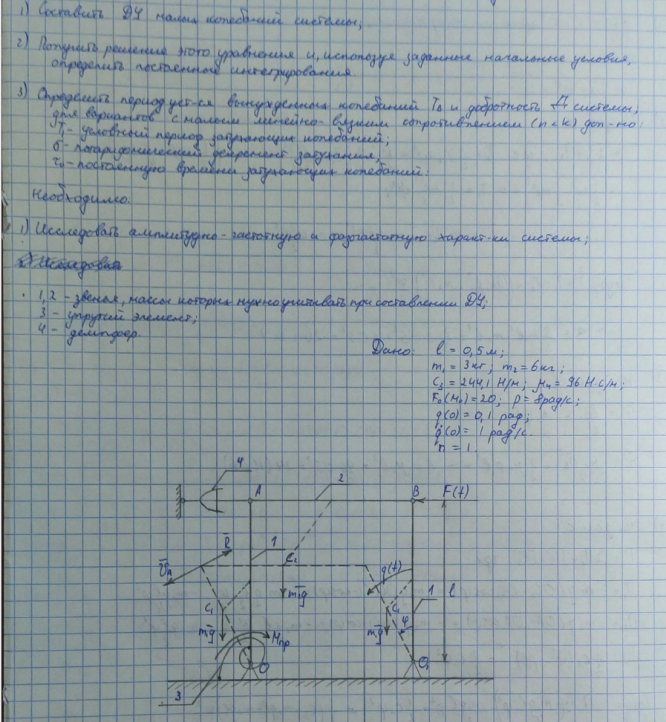 1) Составить ДУ малых колебаний системы;
2) Получить решение этого уравнения и, используя заданные начальные условия,
определить постоянные интегрирования.
3) Определить период уст-ся вынужденных колебаний Тв и добротность Д системы;
для вариантов с малым линейно-вязким сопротивлением (n<k) доп-но:
T₁ - условный период затухающих колебаний;
δ - логарифмический декремент затухания;
τ₀ - постоянную времени затухающих колебаний.
Необходимо:
1) Исследовать амплитудно-частотную и фазочастотную характ-ки системы;
1,2 - звенья, массы которых нужно учитывать при составлении ДУ;
3 - упругий элемент;
4 - демпфер.
Дано: l = 0,5 м;
m₁ = 3 кг; m₂ = 6 кг;
C₃ = 244,1 Н/м; μ₄ = 96 Н·с/м;
F₀(M₀) = 20; p = 8 рад/с;
q(0) = 0,1 рад;
q̇(0) = 1 рад/с.
n = 1.
4
A
2
B
F(t)
R̄
V̄A
1
C₂
q(t)
m₂ḡ
C₁
C₁
1
l
m₁ḡ
m₁ḡ
φ
Mпр
O
O₁
3